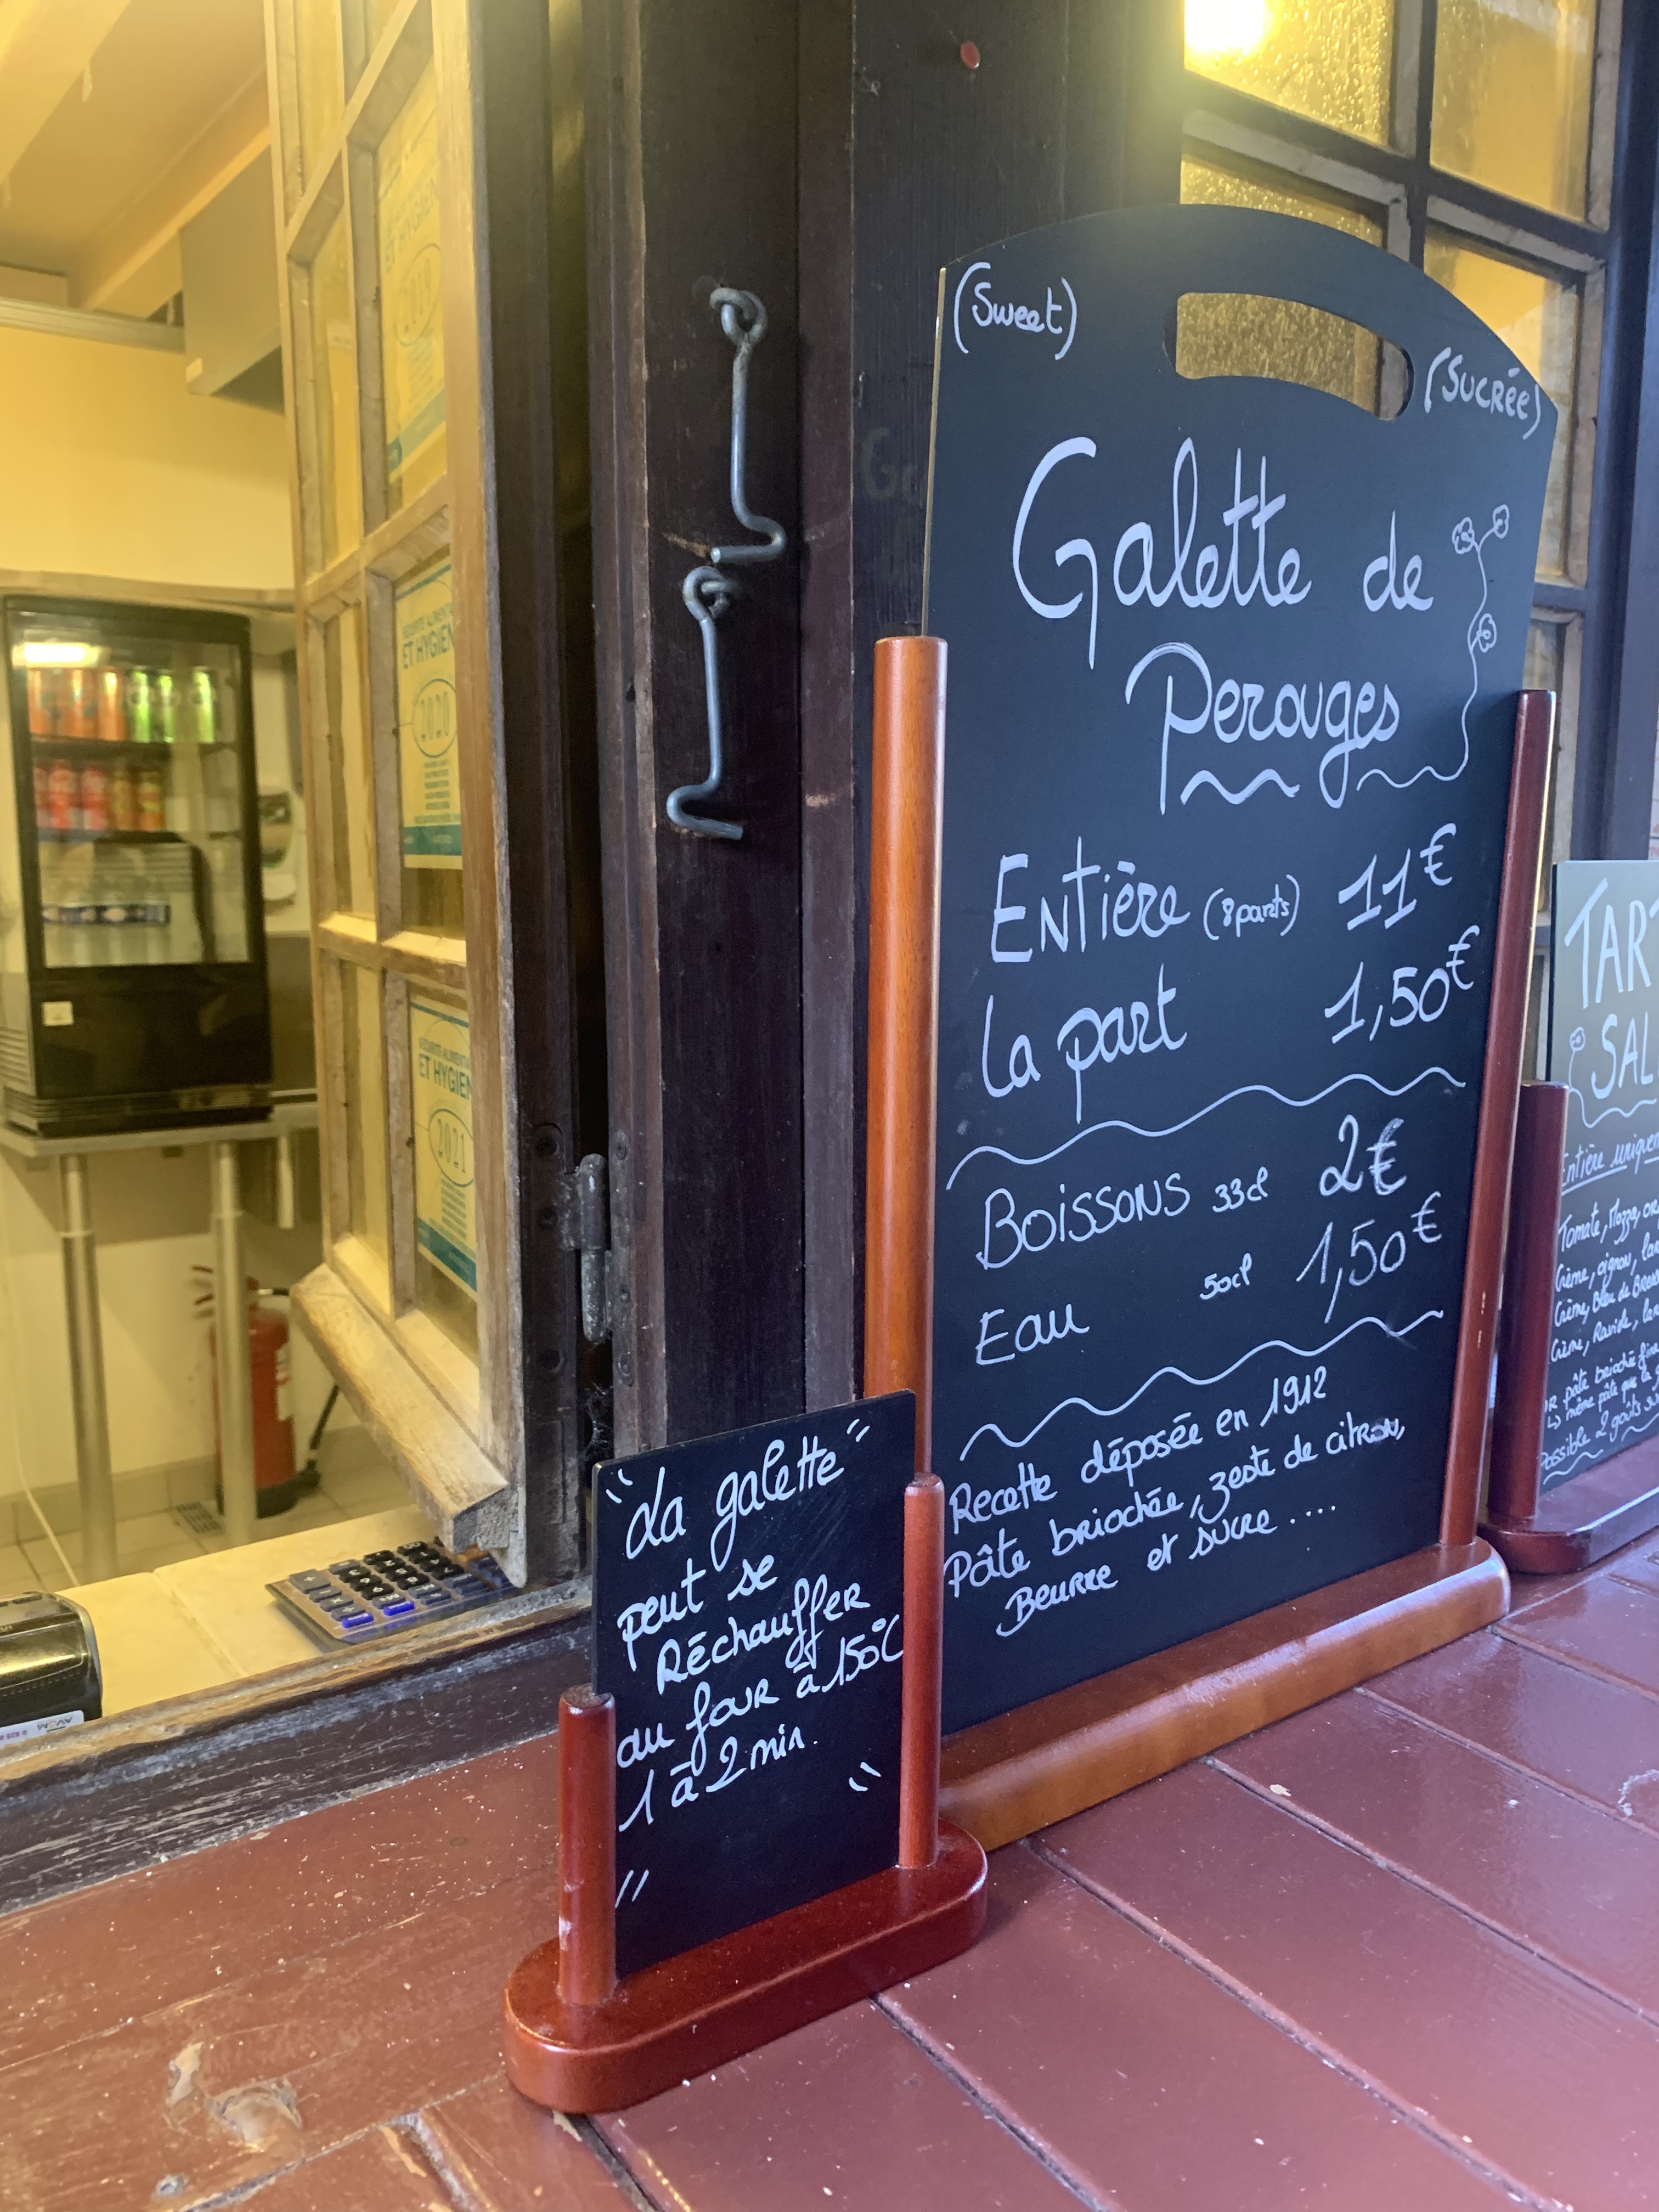 (Sweet)
(Sucrée)
Galette de
Perouges
Entière (8 parts) 11€
La part 1,50€
Boissons 33cl 2€
Eau 50cl 1,50€
Recette déposée en 1912
Pâte briochée, zeste de citron,
Beurre et sucre ....
"La galette"
peut se
Réchauffer
au four à 150°C
1 à 2 min.
TART
SAL
Entière
Tomate, Mozza,
Crème, oignon,
Crème, Bleu de Bress
Crème, Ravide,
pâte briochée fine
même pâte que la
Possible 2 goûts
ET HYGIEN
2019
ET HYGIEN
2020
SÉCURITÉ ALIMENTA
ET HYGIEN
2021